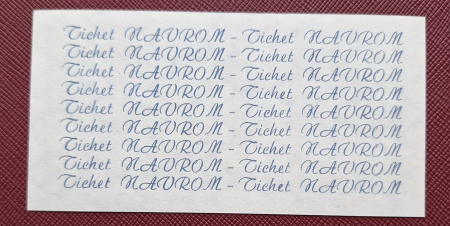 Tichet NAVROM - Tichet NAVROM
Tichet NAVROM - Tichet NAVROM
Tichet NAVROM - Tichet NAVROM
Tichet NAVROM - Tichet NAVROM
Tichet NAVROM - Tichet NAVROM
Tichet NAVROM - Tichet NAVROM
Tichet NAVROM - Tichet NAVROM
Tichet NAVROM - Tichet NAVROM
Tichet NAVROM - Tichet NAVROM